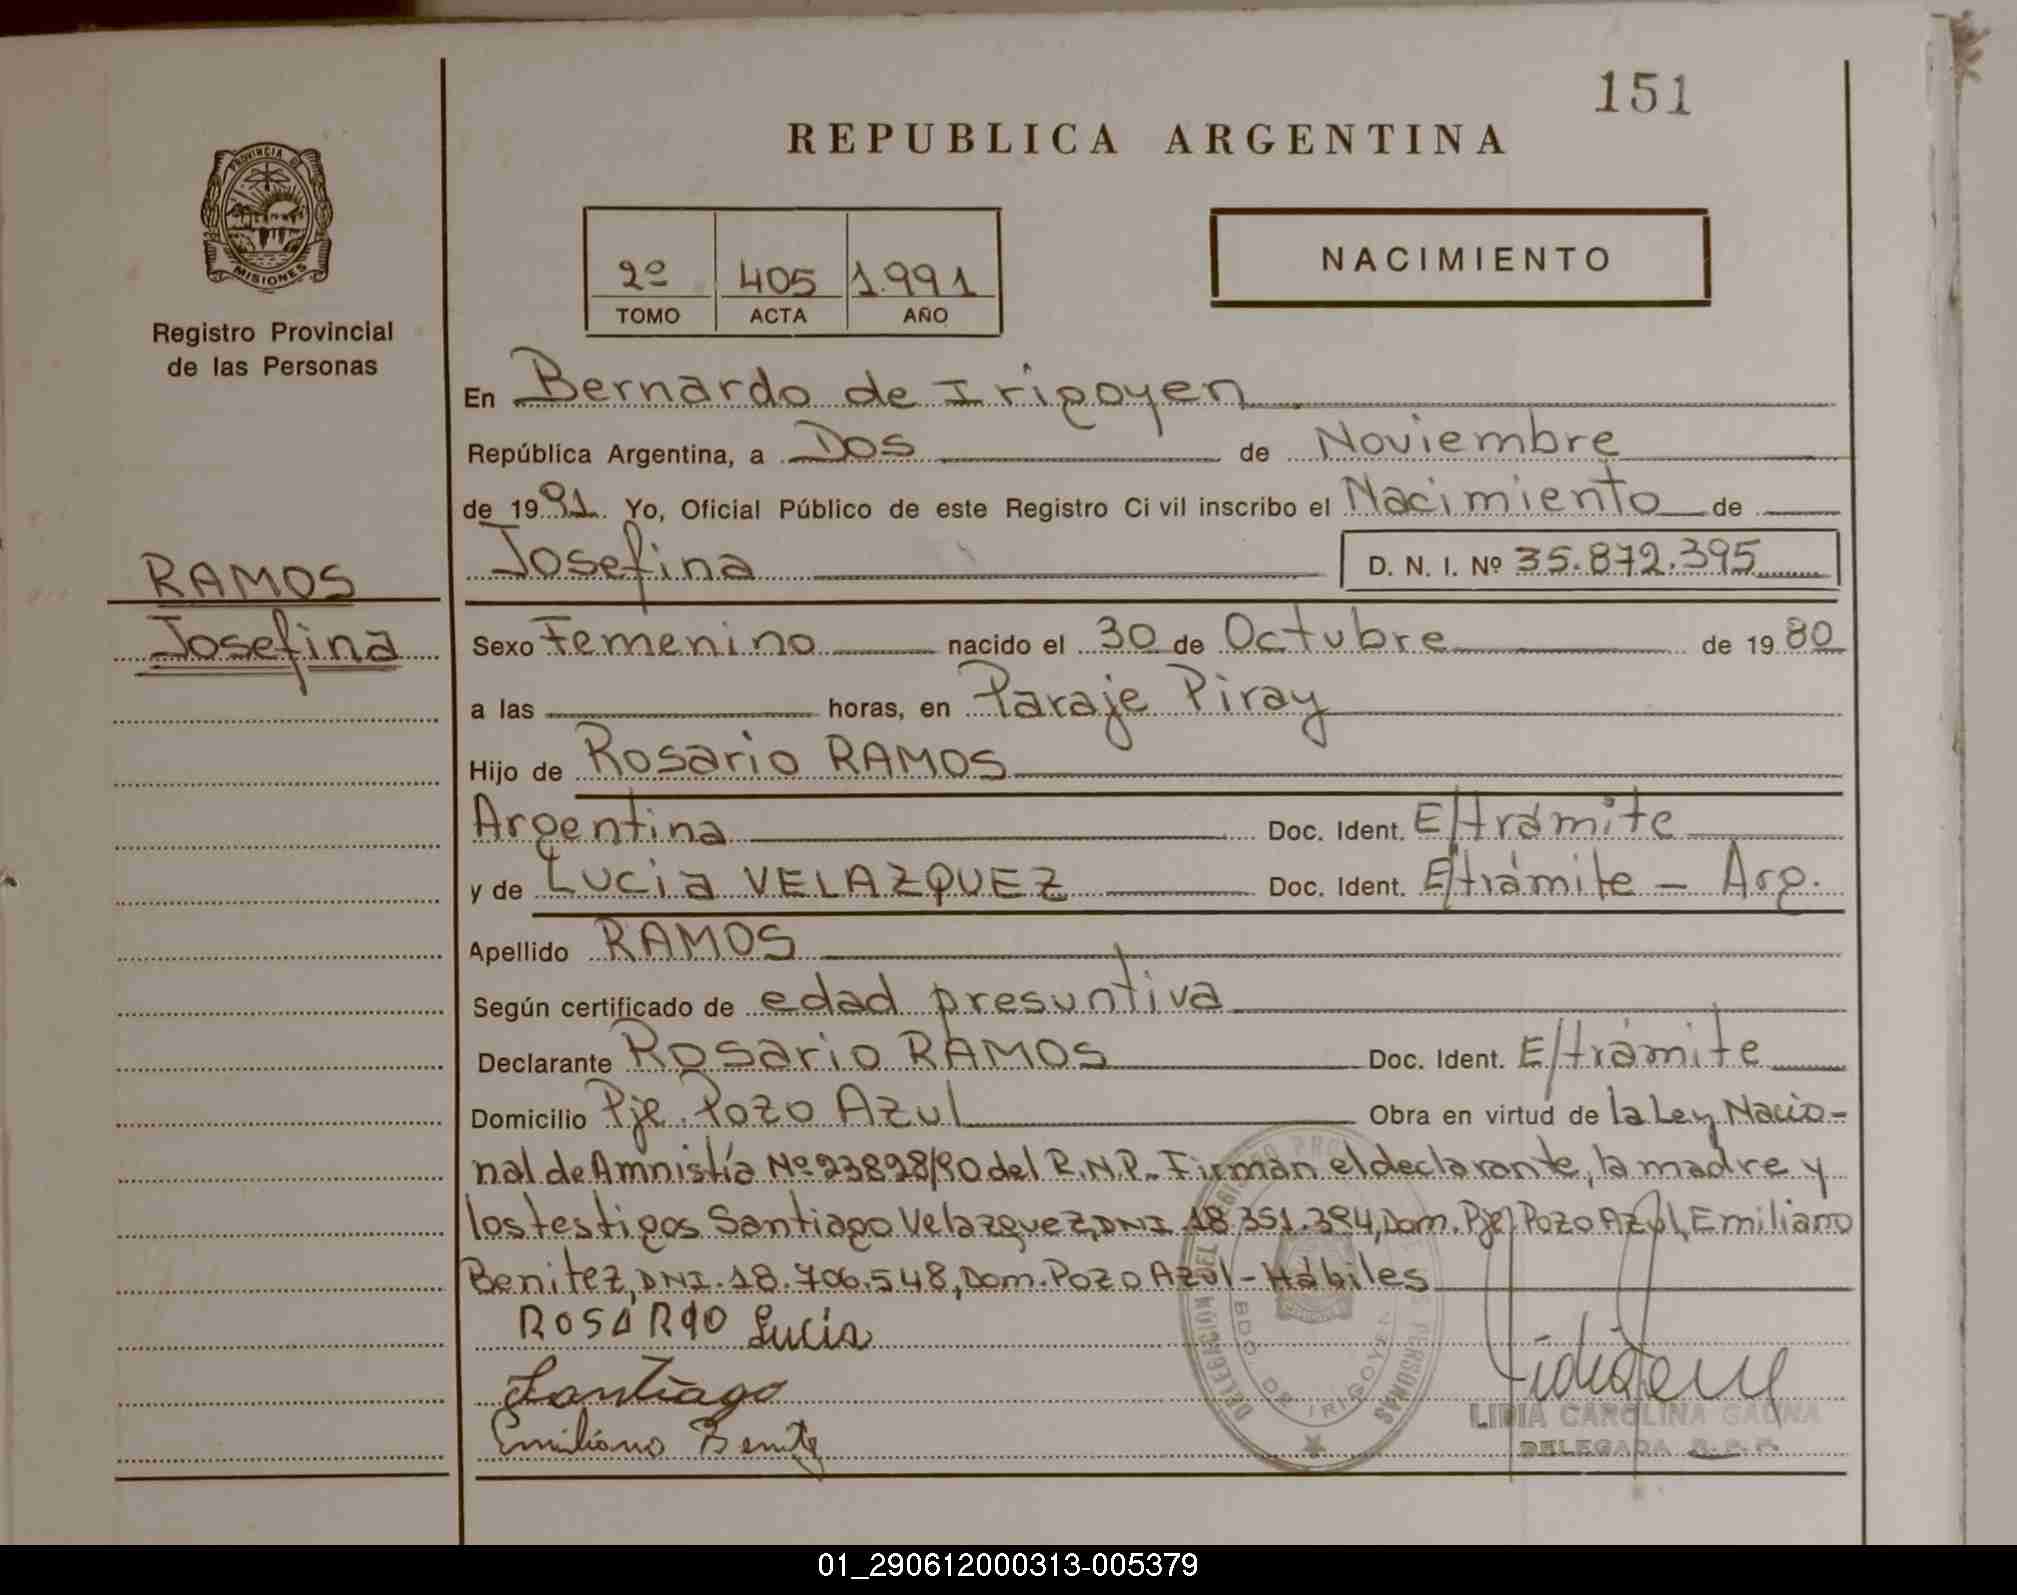 151
REPUBLICA ARGENTINA
PROVINCIA DE
MISIONES
Registro Provincial
de las Personas
2º 405 1.991
TOMO ACTA AÑO
NACIMIENTO
En Bernardo de Irigoyen
República Argentina, a Dos de Noviembre
de 1991. Yo, Oficial Público de este Registro Ci vil inscribo el Nacimiento de
Josefina D. N. I. Nº 35.872.395
RAMOS
Josefina
Sexo Femenino nacido el 30 de Octubre de 1980
a las horas, en Paraje Piray
Hijo de Rosario RAMOS
Argentina Doc. Ident. E/trámite
y de Lucia VELAZQUEZ Doc. Ident. E/trámite - Arg.
Apellido RAMOS
Según certificado de edad presuntiva
Declarante Rosario RAMOS Doc. Ident. E/trámite
Domicilio Pje. Pozo Azul Obra en virtud de la Ley Nacio-
nal de Amnistía Nº 23828/90 del R.N.P.. Firman el declarante, la madre y
los testigos Santiago Velazquez, DNI 18.351.394, Dom. Pje. Pozo Azul, Emiliano
Benitez, DNI. 18.706.548, Dom. Pozo Azul - Hábiles
ROSARIO Lucia
Santiago
Emiliano Benitz
DELEGACION DEL REGISTRO PRO DE PERSONAS
BDO. DE IRIGOYEN
LIDIA CAROLINA GAUNA
DELEGADA R.P.P.
01_290612000313-005379